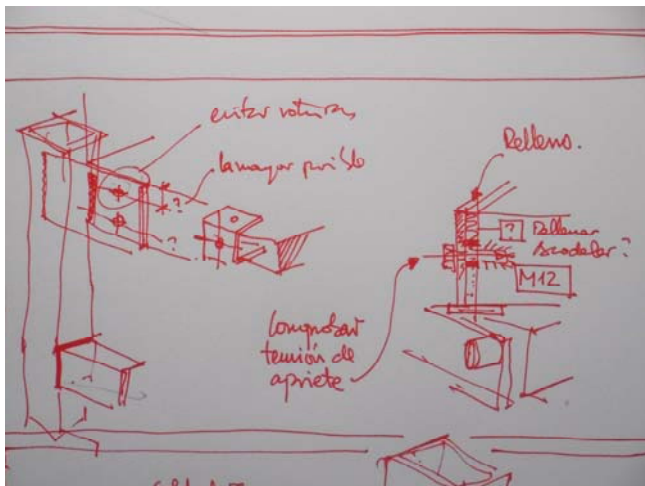 evitar roturas
la mayor posible
?
?
Relleno.
? Rellenar
taladrar?
M12
Comprobar
tensión de
apriete